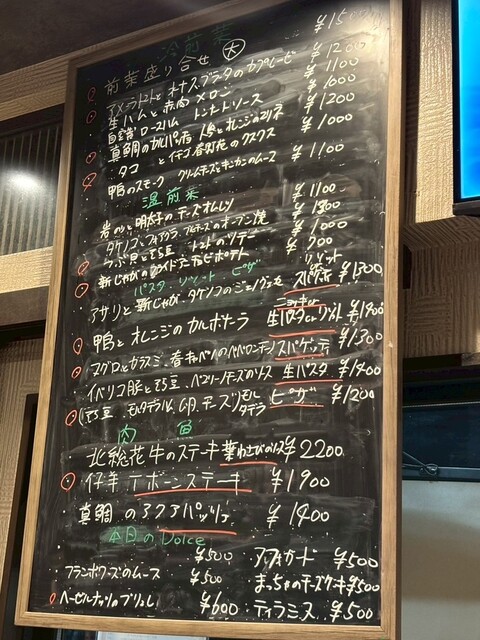 冷前菜
前菜盛り合せ 大 ¥15
アメーラトマトとストラッチャテラのカプレーゼ ¥1200
生ハムと赤肉メロン ¥1100
自家製ロースハム トンナートソース ¥1000
真鯛のカルパッチョ 人参とオレンジのマリネ ¥1200
タコとイチゴ 春野菜のクスクス ¥1000
鴨のスモーク クリームチーズとキンカンのムース ¥1100
温前菜
岩のりと明太子のチーズオムレツ ¥1100
タケノコとフォアグラ チーズのオーブン焼 ¥1300
つぶ貝とそら豆 トマトのソテー ¥1000
新じゃがのフライドポテト ¥700
パスタ・リゾット・ピザ
アサリと新じゃが・タケノコのジェノヴェーゼ スパゲティ ¥1300
鴨とオレンジのカルボナーラ 生パスタ or リゾット ¥1800
マグロとカラスミ・春キャベツのペペロンチーノ スパゲッティ ¥1300
イベリコ豚とそら豆・ペコリーノチーズのソース 生パスタ ¥1400
そら豆、モルタデッラ、4種チーズ ピザ ¥1200
肉 魚
北総花牛のステーキ 葉わさびのソース ¥2200
仔羊 Tボーンステーキ ¥1900
真鯛のアクアパッツァ ¥1400
本日のDolce
¥500 アフォガード ¥500
フランボワーズのムース ¥500 まっちゃのチーズケーキ ¥500
ヘーゼルナッツのブリュレ ¥600 ティラミス ¥500